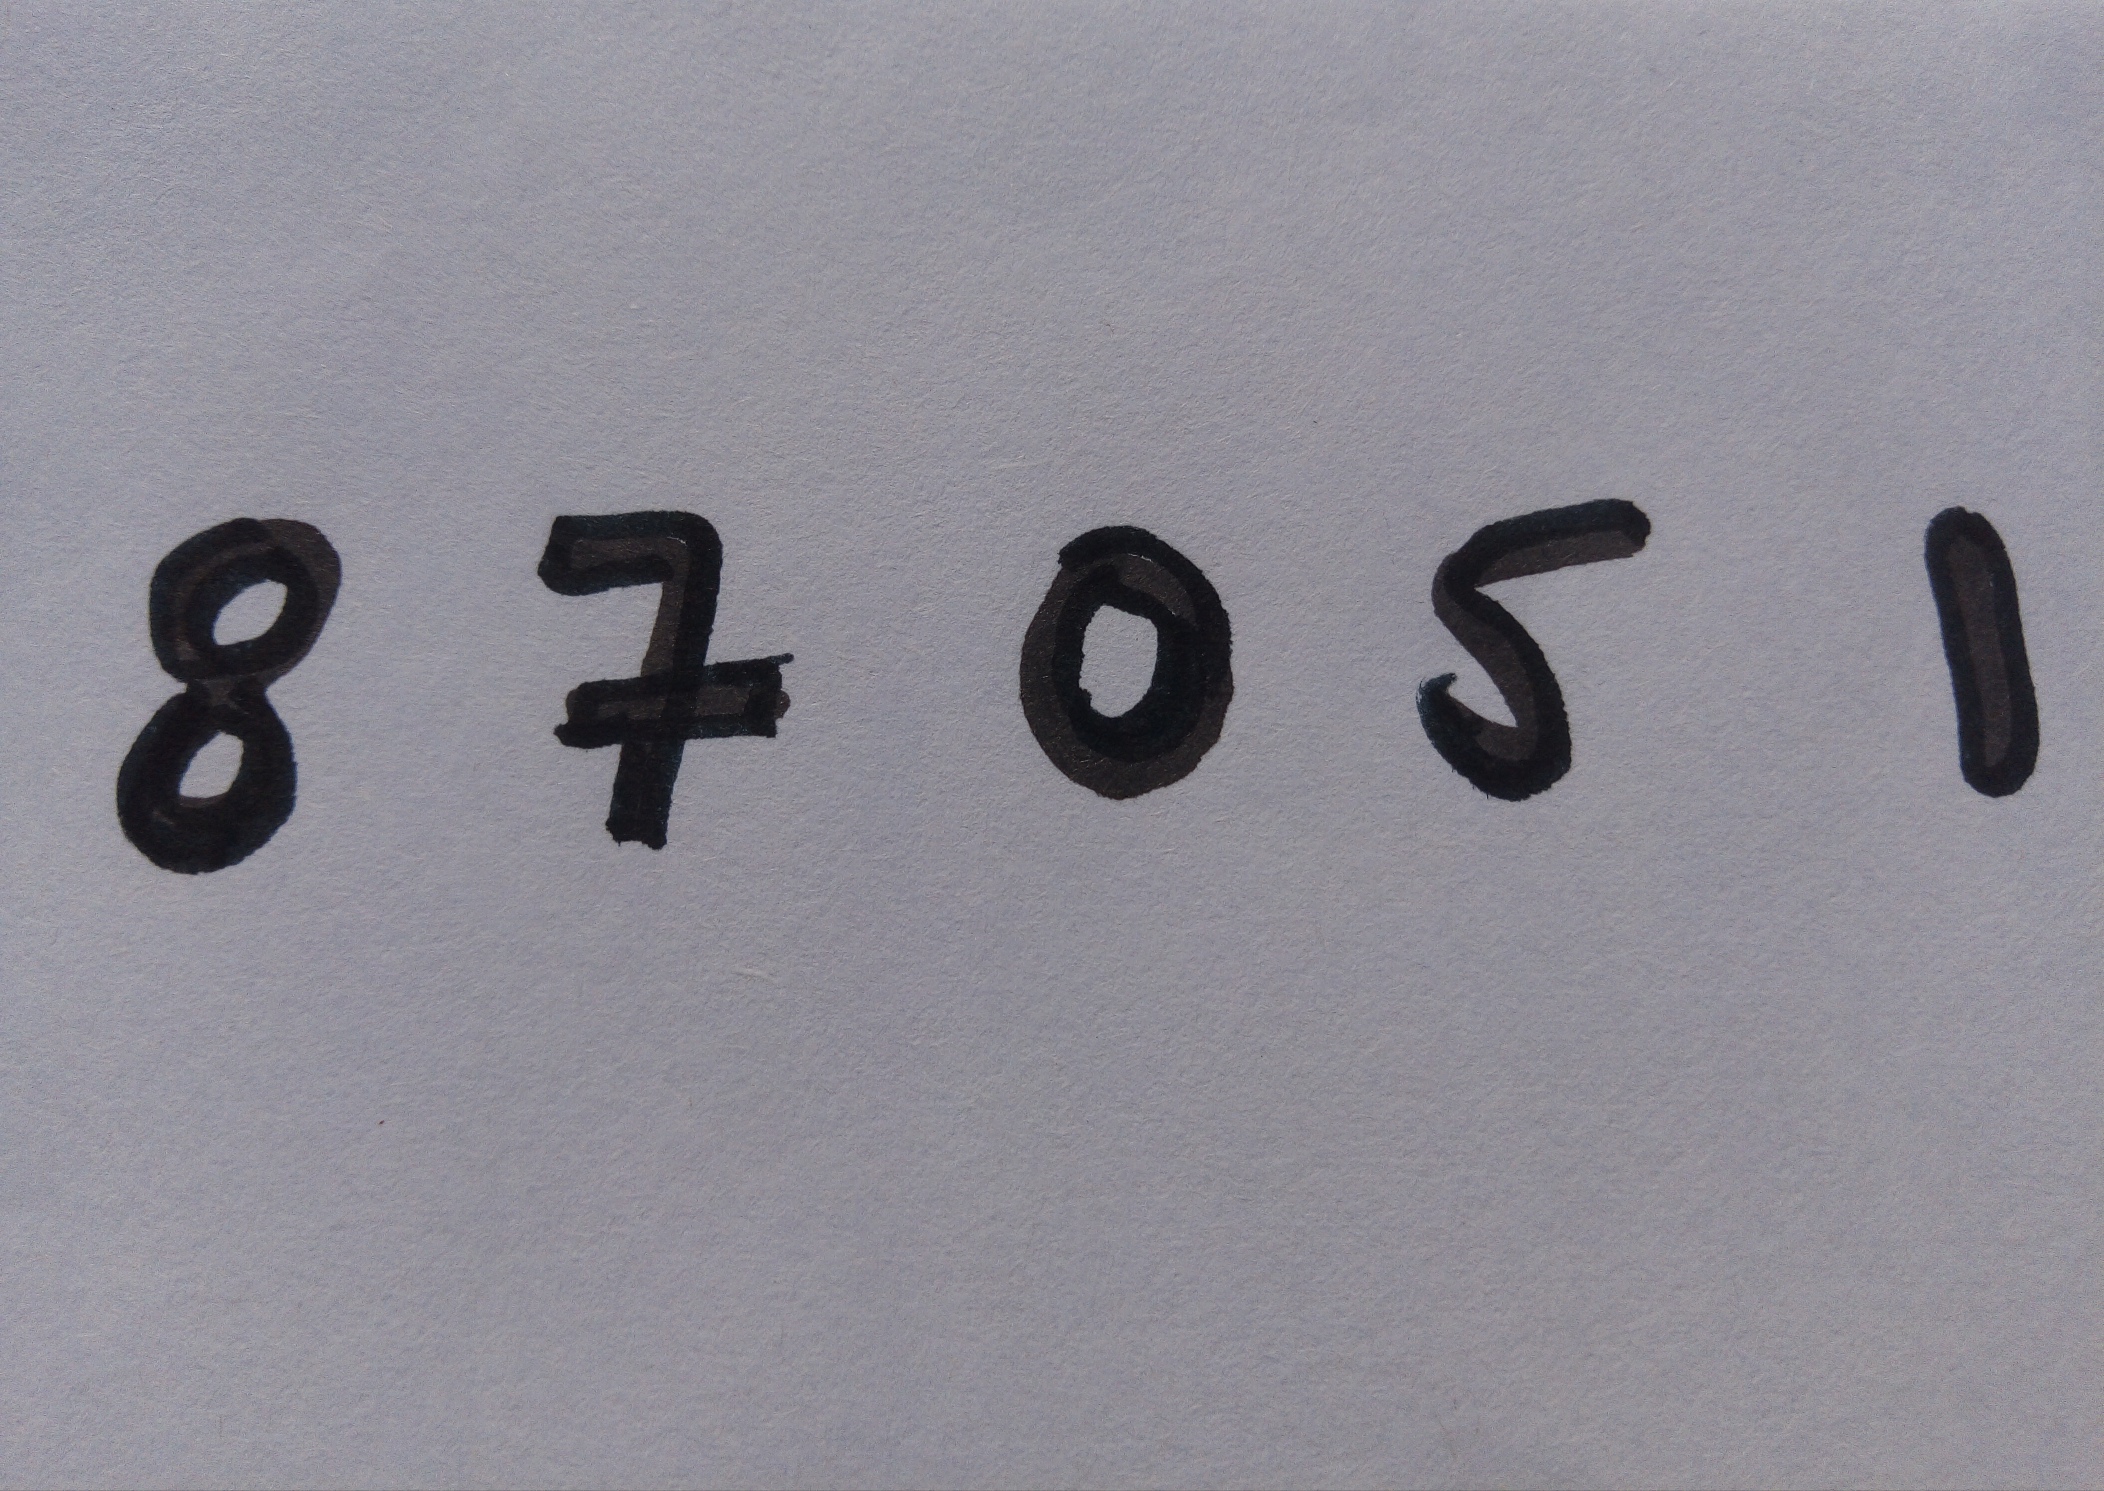 8 7 0 5 1